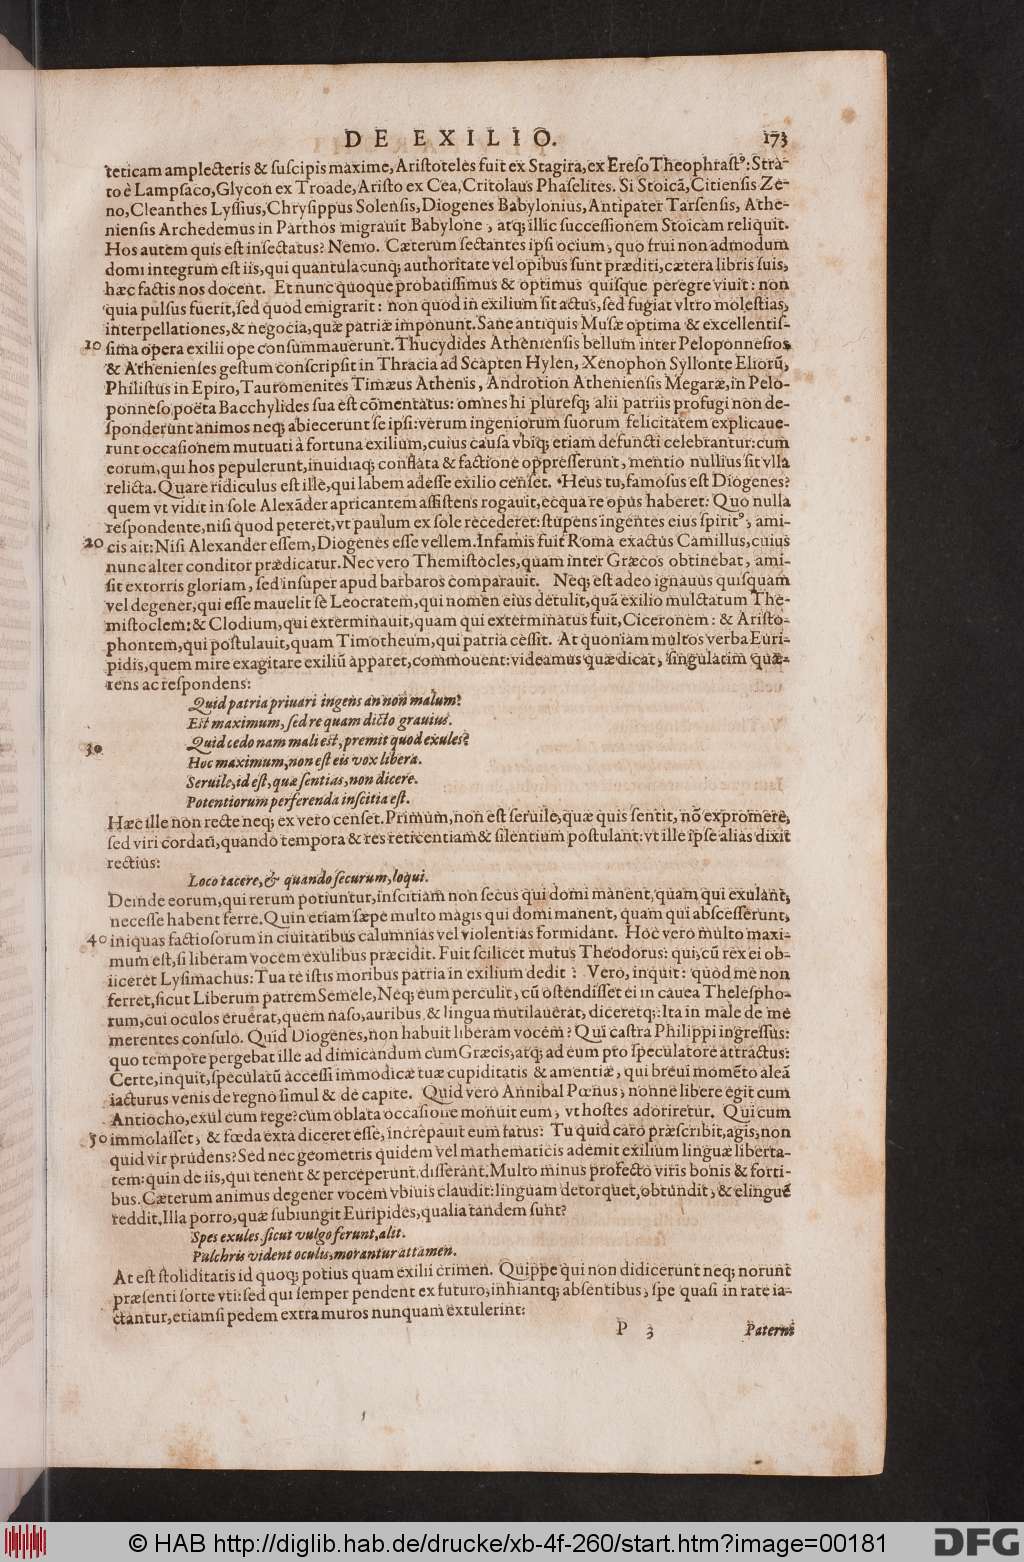 DE EXILIO. 173
teticam amplecteris & suscipis maxime, Aristoteles fuit ex Stagira, ex Ereso Theophrastꝰ: Stra-
to è Lampsaco, Glycon ex Troade, Aristo ex Cea, Critolaus Phaselites. Si Stoicã, Citiensis Ze-
no, Cleanthes Lyssius, Chrysippus Solensis, Diogenes Babylonius, Antipater Tarsensis, Athe-
niensis Archedemus in Parthos migrauit Babylone, atq; illic successionem Stoicam reliquit.
Hos autem quis est insectatus? Nemo. Cæterum sectantes ipsi ocium, quo frui non admodum
domi integrum est iis, qui quantulacunq; authoritate vel opibus sunt præditi, cætera libris suis,
hæc factis nos docent. Et nunc quoque probatissimus & optimus quisque peregre viuit: non
quia pulsus fuerit, sed quod emigrarit: non quod in exilium sit actus, sed fugiat vltro molestias,
interpellationes, & negocia, quæ patriæ imponunt. Sane antiquis Musæ optima & excellentis-
10 sima opera exilii ope consummauerunt. Thucydides Atheniensis bellum inter Peloponnesios
& Athenienses gestum conscripsit in Thracia ad Scapten Hylen, Xenophon Syllonte Eliorũ,
Philistus in Epiro, Tauromenites Timæus Athenis, Androtion Atheniensis Megaræ, in Pelo-
ponneso poëta Bacchylides sua est cõmentatus: omnes hi pluresq; alii patriis profugi non de-
sponderunt animos neq; abiecerunt se ipsi: verum ingeniorum suorum felicitatem explicaue-
runt occasionem mutuati à fortuna exilium, cuius causa vbiq; etiam defuncti celebrantur: cum
eorum, qui hos pepulerunt, inuidiaq; conflata & factione oppresserunt, mentio nullius sit vlla
relicta. Quare ridiculus est ille, qui labem adesse exilio censet. Heus tu, famosus est Diogenes?
quem vt vidit in sole Alexãder apricantem assistens rogauit, ecqua re opus haberet: Quo nulla
respondente, nisi quod peteret, vt paulum ex sole recederet: stupens ingentes eius spiritꝰ, ami-
20 cis ait: Nisi Alexander essem, Diogenes esse vellem. Infamis fuit Roma exactus Camillus, cuius
nunc alter conditor prædicatur. Nec vero Themistocles, quam inter Græcos obtinebat, ami-
sit extorris gloriam, sed insuper apud barbaros comparauit. Neq; est adeo ignauus quisquam
vel degener, qui esse mauelit se Leocratem, qui nomen eius detulit, quã exilio mulctatum The-
mistoclem: & Clodium, qui exterminauit, quam qui exterminatus fuit, Ciceronem: & Aristo-
phontem, qui postulauit, quam Timotheum, qui patria cessit. At quoniam multos verba Euri-
pidis, quem mire exagitare exiliũ apparet, commouent: videamus quæ dicat, singulatim quæ-
rens ac respondens:
Quid patria priuari ingens an non malum?
Est maximum, sed re quam dicto grauius.
30 Quid cedo nam mali est, premit quod exules?
Hoc maximum, non est eis vox libera.
Seruile, id est, quæ sentias, non dicere.
Potentiorum perferenda inscitia est.
Hæc ille non recte neq; ex vero censet. Primum, non est seruile, quæ quis sentit, nõ expromere,
sed viri cordati, quando tempora & res reticentiam & silentium postulant: vt ille ipse alias dixit
rectius:
Loco tacere, & quando securum, loqui.
Deinde eorum, qui rerum potiuntur, inscitiam non secus qui domi manent, quam qui exulant,
necesse habent ferre. Quin etiam sæpe multo magis qui domi manent, quam qui abscesserunt,
40 iniquas factiosorum in ciuitatibus calumnias vel violentias formidant. Hoc vero multo maxi-
mum est, si liberam vocem exulibus præcidit. Fuit scilicet mutus Theodorus: qui, cũ rex ei ob-
iiceret Lysimachus: Tua te istis moribus patria in exilium dedit: Vero, inquit: quod me non
ferret, sicut Liberum patrem Semele, Neq; eum perculit, cũ ostendisset ei in cauea Thelespho-
rum, cui oculos eruerat, quem naso, auribus & lingua mutilauerat, diceretq;: Ita in male de me
merentes consulo. Quid Diogenes, non habuit liberam vocem? Qui castra Philippi ingressus:
quo tempore pergebat ille ad dimicandum cum Græcis, atq; ad eum pro speculatore attractus:
Certe, inquit, speculatũ accessi immodicæ tuæ cupiditatis & amentiæ, qui breui momẽto aleã
iacturus venis de regno simul & de capite. Quid vero Annibal Pœnus, nonne libere egit cum
Antiocho, exul cum rege? cum oblata occasione monuit eum, vt hostes adoriretur. Qui cum
50 immolasset, & fœda exta diceret esse, increpauit eum fatus: Tu quid caro præscribit, agis, non
quid vir prudens? Sed nec geometris quidem vel mathematicis ademit exilium linguæ liberta-
tem: quin de iis, quæ tenent & perceperunt, disserant. Multo minus profecto viris bonis & forti-
bus. Cæterum animus degener vocem vbiuis claudit: linguam detorquet, obtundit, & elinguẽ
reddit. Illa porro, quæ subiungit Euripides, qualia tandem sunt?
Spes exules, sicut vulgo ferunt, alit.
Pulchris vident oculis, morantur attamen.
At est stoliditatis id quoq; potius quam exilii crimen. Quippe qui non didicerunt neq; norunt
præsenti sorte vti: sed qui semper pendent ex futuro, inhiantq; absentibus, spe quasi in rate ia-
ctantur, etiamsi pedem extra muros nunquam extulerint:
P 3 Paterni
© HAB http://diglib.hab.de/drucke/xb-4f-260/start.htm?image=00181 DFG